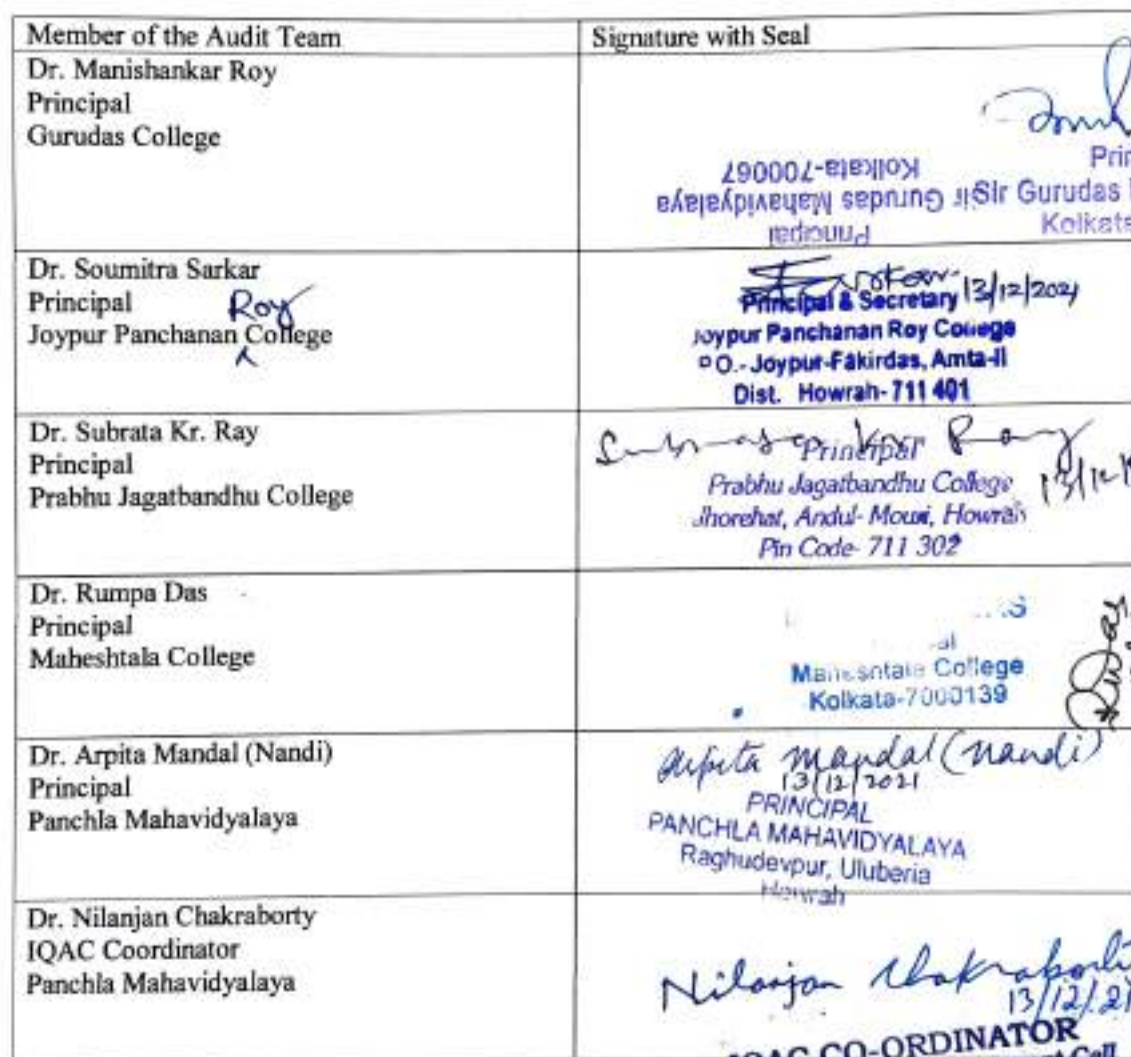 Member of the Audit Team
Signature with Seal
Dr. Manishankar Roy
Principal
Gurudas College
Principal
Sir Gurudas Mahavidyalaya
Kolkata-700067
Prin
Sir Gurudas
Kolkata
Dr. Soumitra Sarkar
Principal
Joypur Panchanan Roy College
Sarkar 13/12/2021
Principal & Secretary
Joypur Panchanan Roy College
P.O.- Joypur-Fakirdas, Amta-II
Dist. Howrah- 711 401
Dr. Subrata Kr. Ray
Principal
Prabhu Jagatbandhu College
Subrata Kr Ray
13/12
Principal
Prabhu Jagatbandhu College
Jhorehat, Andul- Mouri, Howrah
Pin Code- 711 302
Dr. Rumpa Das
Principal
Maheshtala College
Maheshtala College
Kolkata-7000139
Dr. Arpita Mandal (Nandi)
Principal
Panchla Mahavidyalaya
Arpita Mandal (Nandi)
13/12/2021
PRINCIPAL
PANCHLA MAHAVIDYALAYA
Raghudevpur, Uluberia
Howrah
Dr. Nilanjan Chakraborty
IQAC Coordinator
Panchla Mahavidyalaya
Nilanjan Chakraborti
13/12/21
IQAC CO-ORDINATOR
Cell